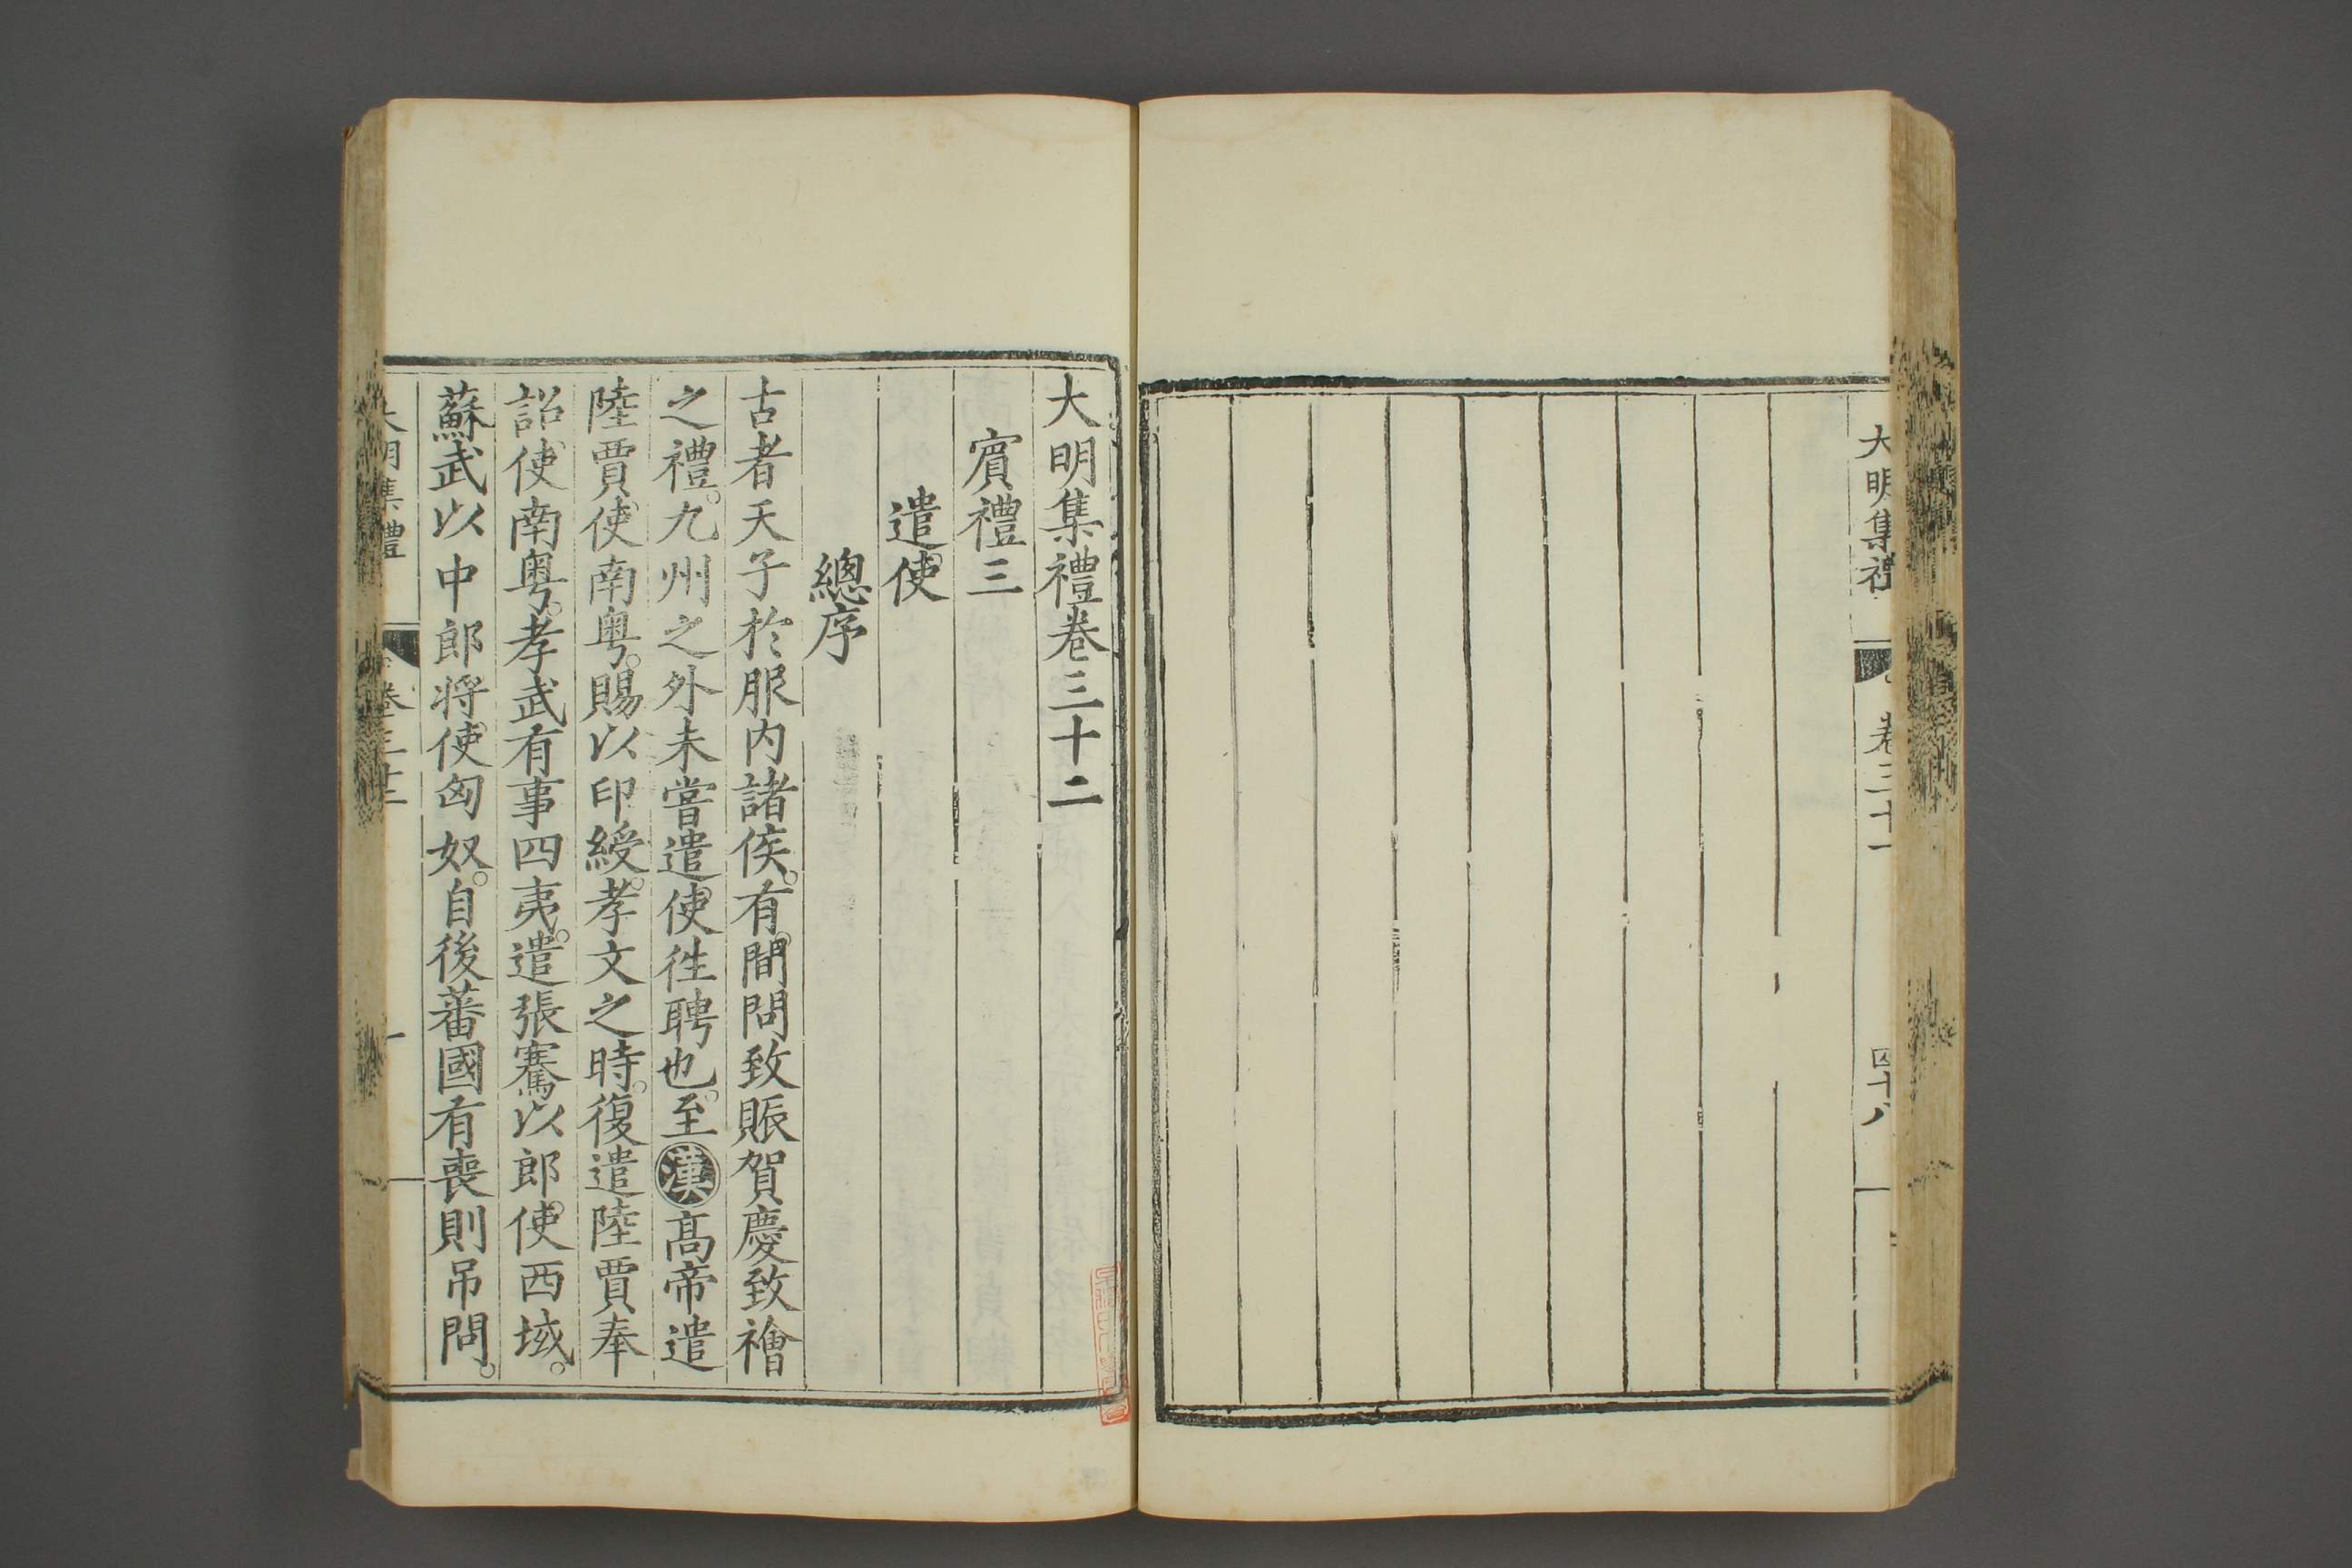 大明集禮
卷三十一
四十八
大明集禮卷三十二
賔禮三
遣使
總序
古者天子於服内諸侯。有間問致賑賀慶致襘
之禮。九州之外未嘗遣使徃聘也。至漢髙帝遣
陸賈使南粤。賜以印綬。孝文之時。復遣陸賈奉
詔使南粤。孝武有事四夷。遣張騫以郎使西域。
蘇武以中郎将使匈奴。自後蕃國有喪則吊問。
大明集禮
卷三十二
一